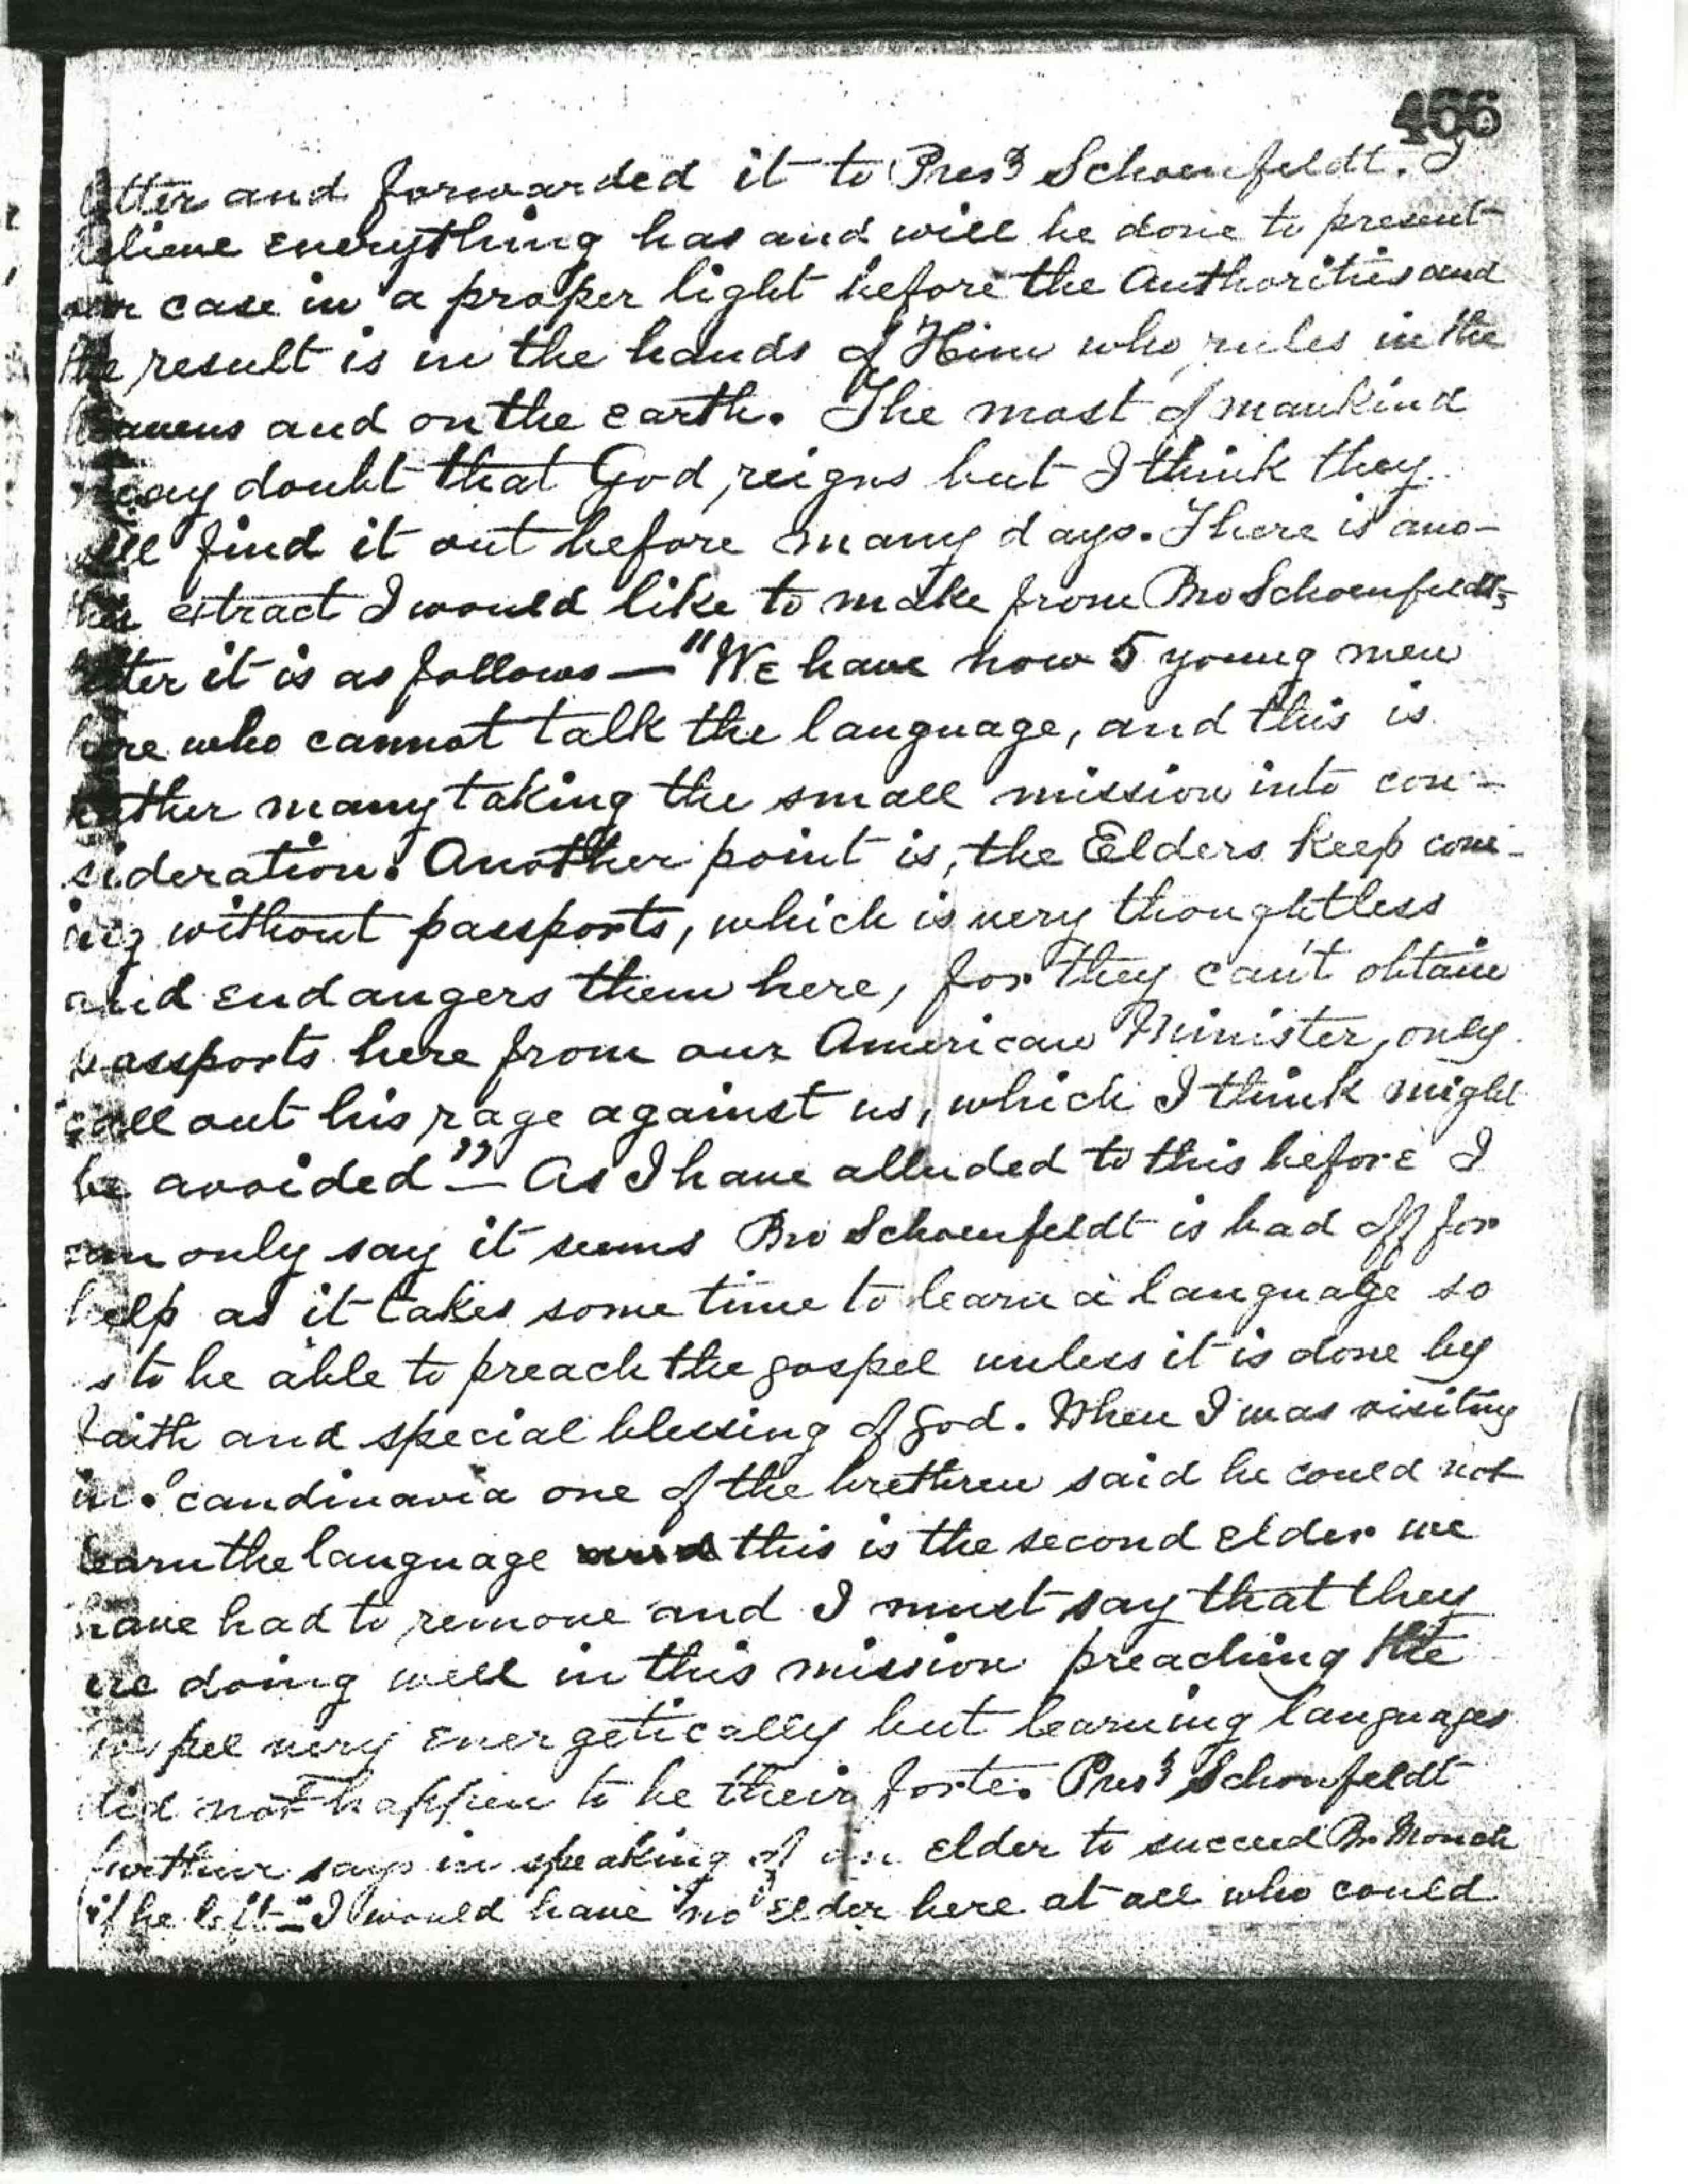 466
letter and forwarded it to Pres^t Schoenfeldt. I
believe everything has and will be done to present
our case in a proper light before the Authorities and
the result is in the hands of Him who rules in the
heavens and on the earth. The most of mankind
may doubt that God reigns but I think they
will find it out before many days. There is ano-
ther extract I would like to make from Bro Schoenfeldts
letter it is as follows — "We have now 5 young men
here who cannot talk the language, and this is
rather many taking the small mission into con-
sideration. Another point is, the Elders keep com-
ing without passports, which is very thoughtless
and endangers them here, for they can't obtain
passports here from our American Minister, only
call out his rage against us, which I think might
be avoided" — As I have alluded to this before I
can only say it seems Bro Schoenfeldt is bad off for
help as it takes some time to learn a language so
as to be able to preach the gospel unless it is done by
faith and special blessing of God. When I was visiting
in Scandinavia one of the brethren said he could not
learn the language and this is the second elder we
have had to remove and I must say that they
are doing well in this mission preaching the
gospel very energetically but learning languages
did not happen to be their forte. Pres^t Schonfeldt
further says in speaking of an elder to succeed Br. Monch
if he left — "I would have no Elder here at all who could